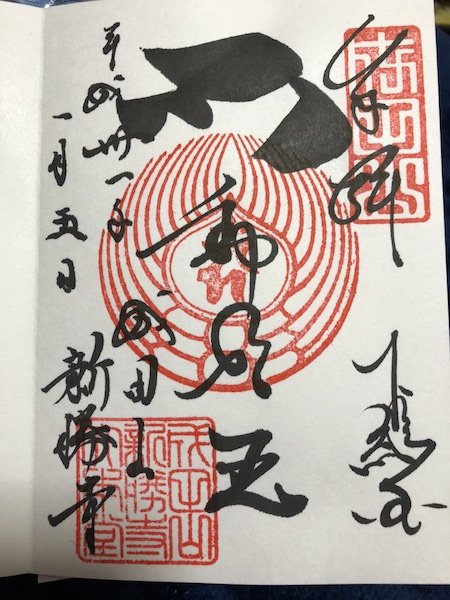 奉拝
下総國
不動明王
成田山
平成卅一年
一月五日
新勝寺
成田山